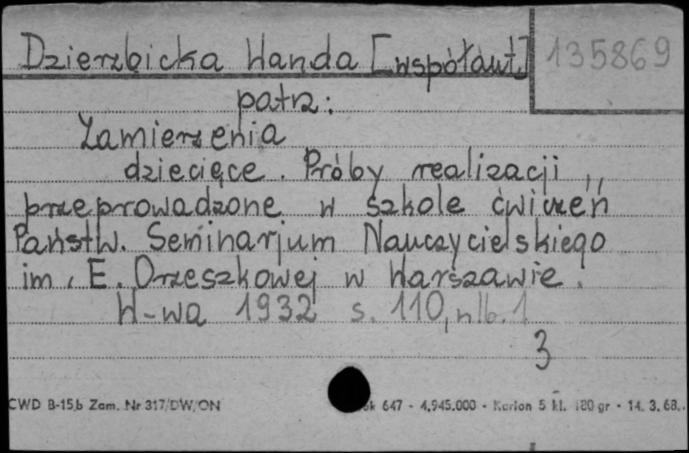 Dzierzbicka Wanda [współaut] 135869
patrz:
Zamierzenia
dziecięce. Próby realizacji,,
przeprowadzone w szkole ćwiczeń
Państw. Seminarjum Nauczycielskiego
im. E. Orzeszkowej w Warszawie.
W-wa 1932 s. 110, nlb. 1
3
CWD B-15b Zam. Nr 317/DW/ON 647 - 4.945.000 - Karton 5 kl. 180 gr - 14. 3. 68.